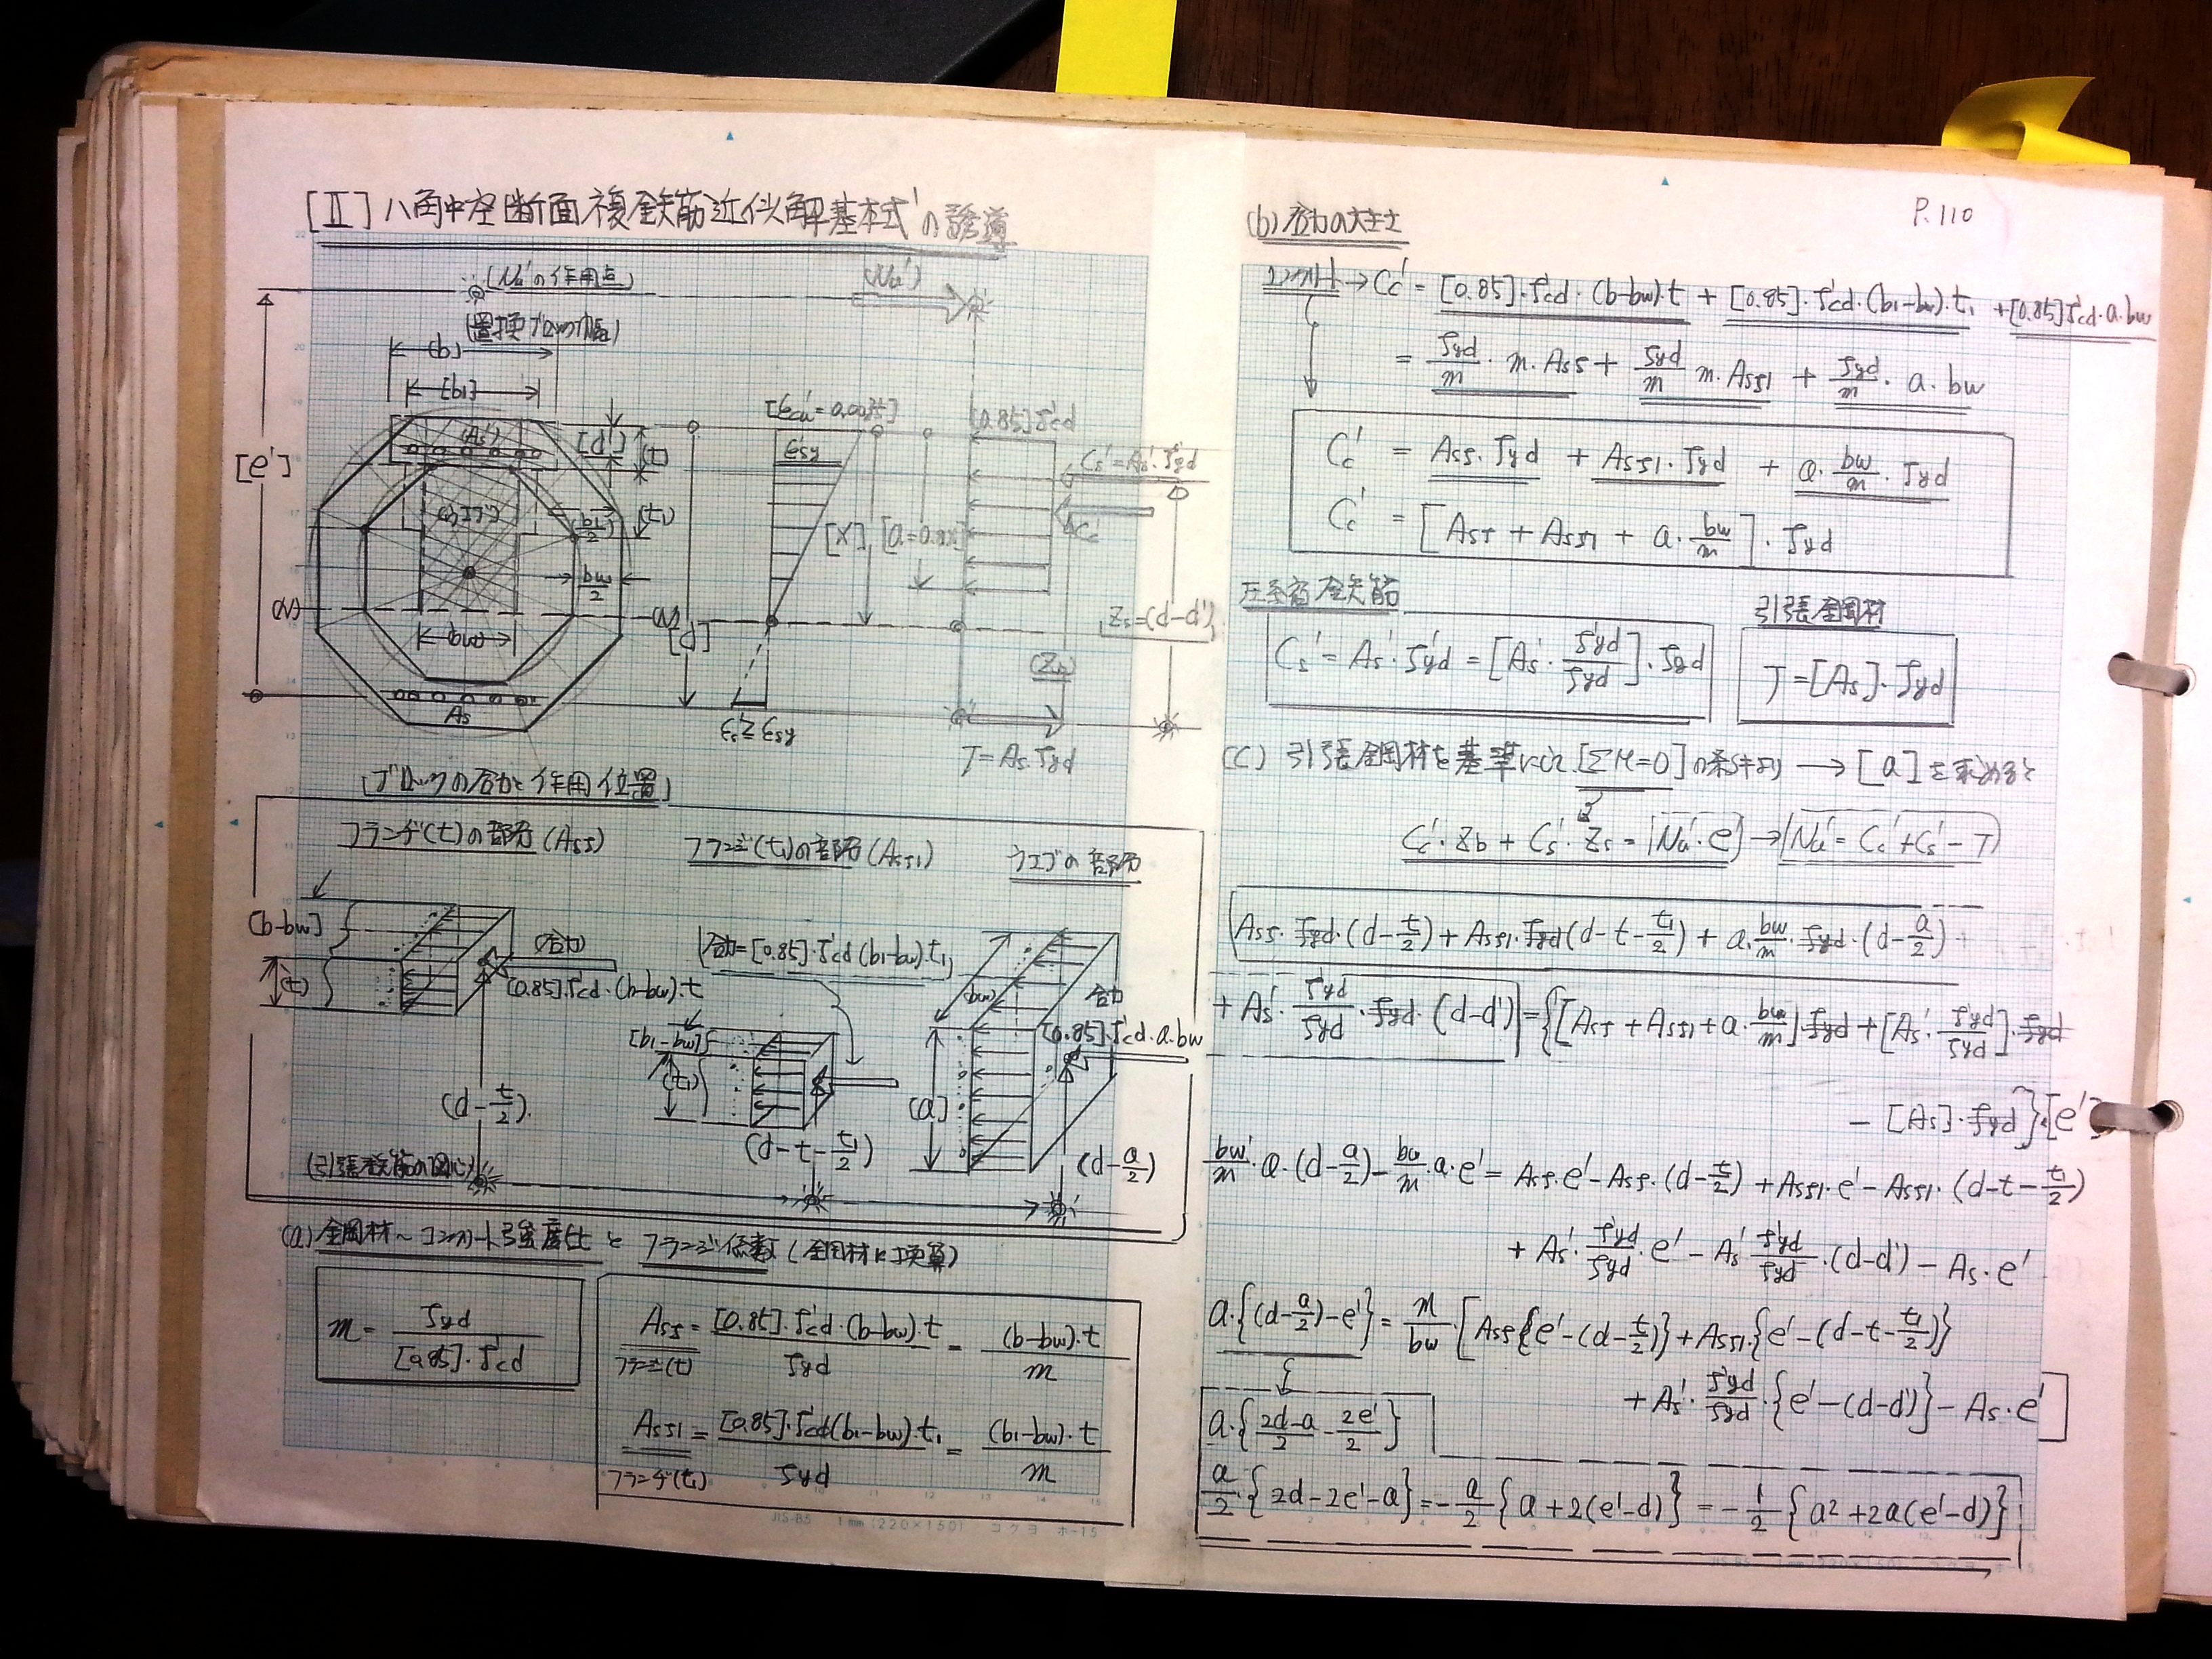 [Ⅱ] 八角中空断面複鉄筋近似解基本式の誘導
(Nu'の作用点)
(Nu')
(置換ブロック幅)
(b)
[b1]
[e']
(As')
[d']
(t)
(t1)
bw/2
(N)
(bw)
As
[εcu'=0.0035]
εsy
[X]
[d]
εs≧εsy
[0.85]f'cd
Cs'=As'·f'yd
Cc'
[a=0.8X]
Zs=(d-d')
(Zb)
T=As·fyd
[ブロックの合力と作用位置]
フランヂ(t)の部分(Asf)
フランヂ(t1)の部分(Asf1)
ウエブの部分
(b-bw)
(t)
(合力)
[0.85]·f'cd·(b-bw)·t
(d-t/2)
(合力=[0.85]·f'cd(b1-bw)·t1)
[b1-bw]
(t1)
(d-t-t1/2)
(bw)
合力
[0.85]·f'cd·a·bw
[a]
(d-a/2)
(引張鉄筋の図心)
(a) 鋼材~コンクリート強度比とフランジ係数(鋼材に換算)
m=fyd/[0.85]·f'cd
Asf=[0.85]·f'cd·(b-bw)·t/fyd=(b-bw)·t/m
フランヂ(t)
Asf1=[0.85]·f'cd(b1-bw)·t1/fyd=(b1-bw)·t/m
フランヂ(t1)
P.110
(b) 合力の大きさ
コンクリート→Cc'=[0.85]·f'cd·(b-bw)·t+[0.85]·f'cd·(b1-bw)·t1+[0.85]f'cd·a·bw
=fyd/m·m·Asf+fyd/m m·Asf1+fyd/m·a·bw
Cc'=Asf·fyd+Asf1·fyd+a·bw/m·fyd
Cc'=[Asf+Asf1+a·bw/m]·fyd
圧縮鉄筋
引張鋼材
Cs'=As'·f'yd=[As'·f'yd/fyd]·fyd
T=[As]·fyd
(c) 引張鋼材を基準にし[ΣM=0]の条件より→[a]を求めると
Cc'·Zb+Cs'·Zs=Nu'·e'→Nu'=Cc'+Cs'-T
Asf·fyd·(d-t/2)+Asf1·fyd(d-t-t1/2)+a·bw/m·fyd·(d-a/2)+
+As'·f'yd/fyd·fyd·(d-d')={[Asf+Asf1+a·bw/m]fyd+[As'·f'yd/fyd]·fyd
-[As]·fyd}·[e']
bw/m·a·(d-a/2)-bw/m·a·e'=Asf·e'-Asf·(d-t/2)+Asf1·e'-Asf1·(d-t-t1/2)
+As'·f'yd/fyd·e'-As'·f'yd/fyd·(d-d')-As·e'
a·{(d-a/2)-e'}=m/bw[Asf{e'-(d-t/2)}+Asf1·{e'-(d-t-t1/2)}
+As'·f'yd/fyd·{e'-(d-d')}-As·e']
a·{2d-a/2-2e'/2}
a/2·{2d-2e'-a}=-a/2{a+2(e'-d)}=-1/2{a²+2a(e'-d)}